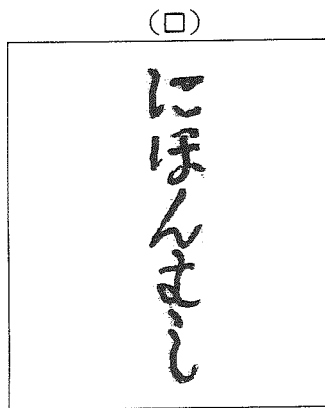 (ロ)
にほんむし